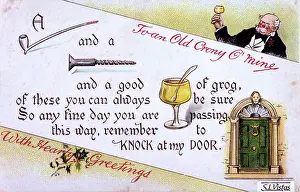 To an Old Crony O' mine
A
and a
and a good of grog,
of these you can always be sure
So any fine day you are passing
this way, remember to
KNOCK at my DOOR.
With Hearty Greetings